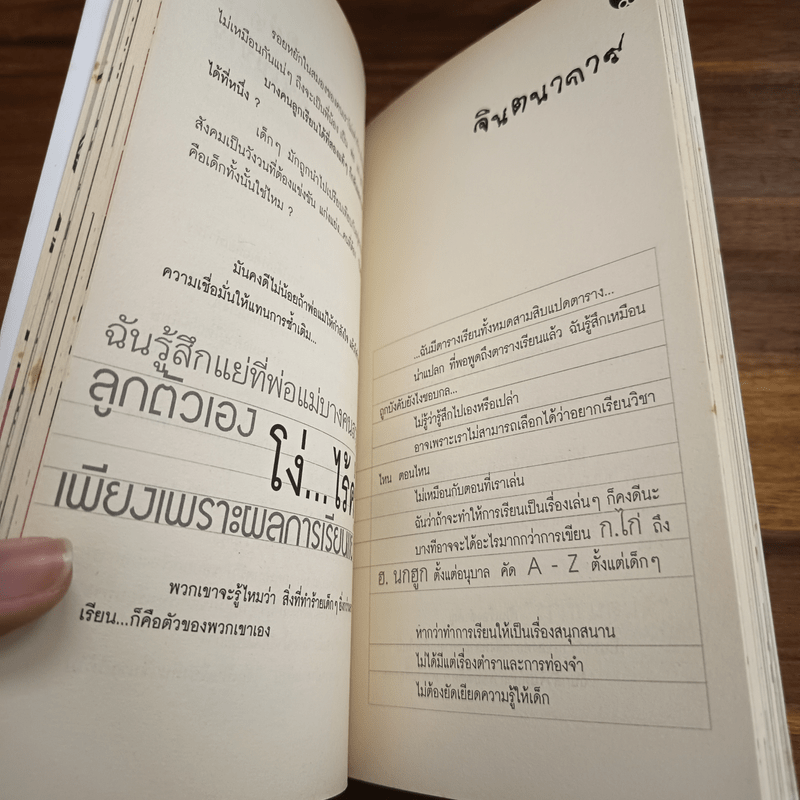 รอยหยักในสมองของคนเรา
ไม่เหมือนกันแน่ๆ ถึงจะเป็นพี่น้อง
บางคนลูกเรียนได้ที่สองแล้ว
ได้ที่หนึ่ง ?
เด็กๆ มักถูกนำไปเปรียบเทียบ
สังคมเป็นวังวนที่ต้องแข่งขัน แก่งแย่ง...คนที่
คือเด็กทั้งนั้นใช่ไหม ?
มันคงดีไม่น้อยถ้าพ่อแม่ให้กำลังใจ
ความเชื่อมั่นให้แทนการซ้ำเติม...
ฉันรู้สึกแย่ที่พ่อแม่บางคน
ลูกตัวเอง โง่...ไร้
เพียงเพราะผลการเรียน
พวกเขาจะรู้ไหมว่า สิ่งที่ทำร้ายเด็กๆ
เรียน...ก็คือตัวของพวกเขาเอง
จินตนาการ
...ฉันมีตารางเรียนทั้งหมดสามสิบแปดตาราง...
น่าแปลก ที่พอพูดถึงตารางเรียนแล้ว ฉันรู้สึกเหมือน
ถูกบังคับยังไงชอบกล...
ไม่รู้ว่ารู้สึกไปเองหรือเปล่า
อาจเพราะเราไม่สามารถเลือกได้ว่าอยากเรียนวิชา
ไหน ตอนไหน
ไม่เหมือนกับตอนที่เราเล่น
ฉันว่าถ้าจะทำให้การเรียนเป็นเรื่องเล่นๆ ก็คงดีนะ
บางทีอาจจะได้อะไรมากกว่าการเขียน ก.ไก่ ถึง
ฮ. นกฮูก ตั้งแต่อนุบาล คัด A - Z ตั้งแต่เด็กๆ
หากว่าทำการเรียนให้เป็นเรื่องสนุกสนาน
ไม่ได้มีแต่เรื่องตำราและการท่องจำ
ไม่ต้องยัดเยียดความรู้ให้เด็ก